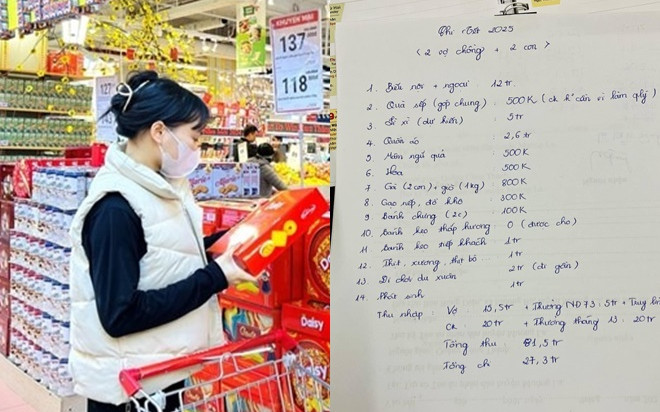 KHUYẾN MẠI
137
118
127
Daisy
Chi Tết 2025
( 2 vợ chồng + 2 con )
1. Biếu nội + ngoại : 12tr
2. Quà sếp (góp chung) : 500K (ck k cần vì làm qlý)
3. Lì xì (dự kiến) : 5tr
4. Quần áo : 2,6tr
5. Mâm ngũ quả : 500K
6. Hoa : 500K
7. Gà (2 con) + giò (1kg) : 800K
8. Gạo nếp, đồ khô : 300K
9. Bánh chưng (2c) : 100K
10. Bánh kẹo thắp hương : 0 (được cho)
11. Bánh kẹo tiếp khách : 1tr
12. Thịt, xương, thịt bò : 1tr
13. Đi chơi du xuân : 2tr (đi gần)
14. Phát sinh 1tr
Thu nhập : Vợ 15,5tr + Thưởng NĐ73: 5tr + Truy
Ck 20tr + Thưởng tháng 13: 20tr
Tổng thu : 81,5tr
Tổng chi 27,3tr